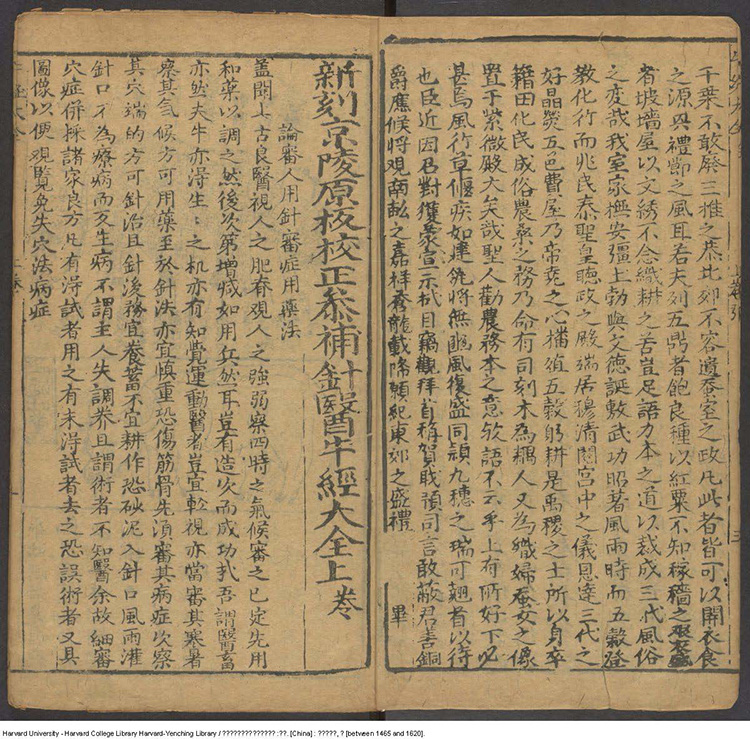 千葉不敢廢三推之恭北郊不容遺蚕室之政凡此者皆可以開衣食
之源興禮節之風耳若夫列五鼎者飽良種以紅粟不知稼穡之
者坡墻屋以文綉不念織耕之苦豈足語力本之道以裁成三代風俗
之变哉我室家撫安疆土勃興文德誕敷武功昭著風雨時而五穀登
教化行而兆民泰聖皇聽政之殿端居穆清閟宮中之儀恩達三代之
好晶熒五色費屋乃帝堯之心播殖五穀躬耕是禹稷之士所以身率
籍田化民成俗農桑之務乃命有司刻木為耦人又為織婦蚕女之像
置于紫微殿大矣哉聖人勸農務本之意欤語不云乎上有所好下必
甚焉風行草偃疾如建瓴將無豳風復盛同穎九穗之瑞可翹首以待
也臣近因召對獲蒙宣示拭目竊觀拜首稱賀職預司言敢蔽君善銅
爵應候將觀兩虬之嘉祥秀龍載陽願紀東郊之盛禮
畢
新刻京陵原板校正叅補針醫牛經大全上卷
論審人用針審症用藥法
盖聞上古良醫視人之肥脊觀人之強弱察四時之氣候審之已定先用
和藥以調之然後次第增減如用兵然耳豈有造次而成功扎吾謂醫畜
亦然夫牛亦淂生：之机亦有知覺運動醫者豈宜輕視亦當審其寒暑
察其气候方可用藥至於針法亦宜慎重恐傷筋骨先湏審其病症次察
其穴端的方可針治且針後務宜養蓄不宜耕作恐砂泥入針口風雨灌
針口不為療病而反生病不謂主人失調养且謂術者不知醫余故細審
穴症併採諸家良方凡有淂試者用之有未淂試者去之恐誤術者又具
圖像以便观覽免失穴法病症
Harvard University - Harvard College Library Harvard-Yenching Library / ?????????????? :??. [China] : ?????, ? [between 1465 and 1620].